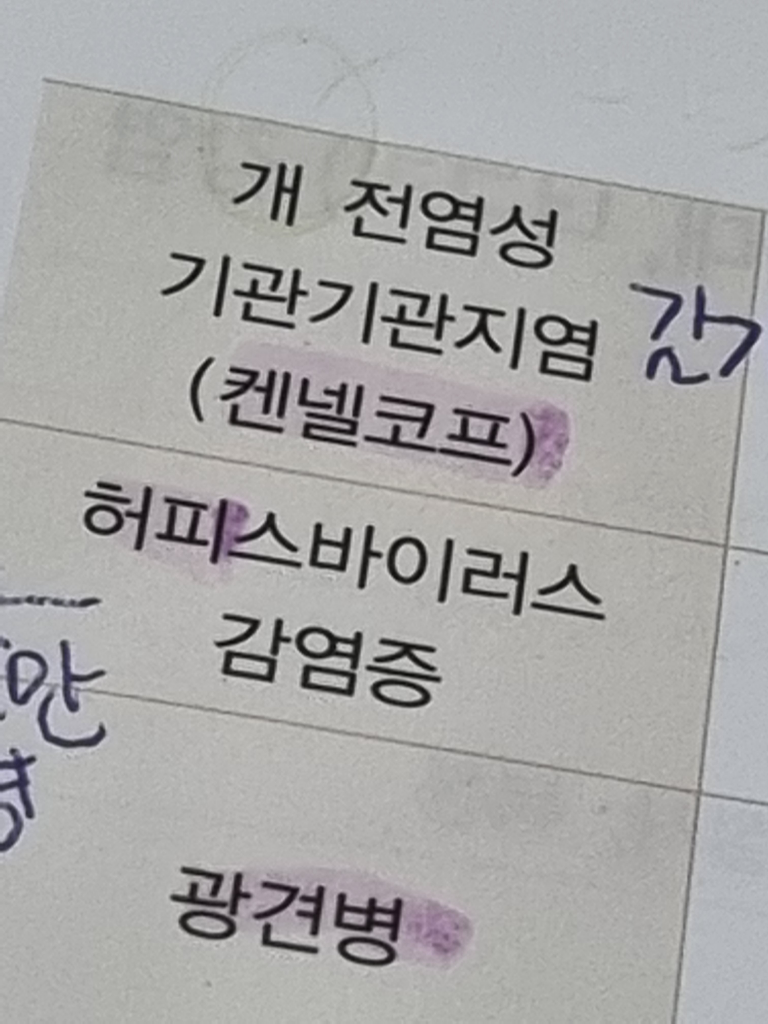 개 전염성
기관기관지염
(켄넬코프)
허피스바이러스
감염증
만
광견병